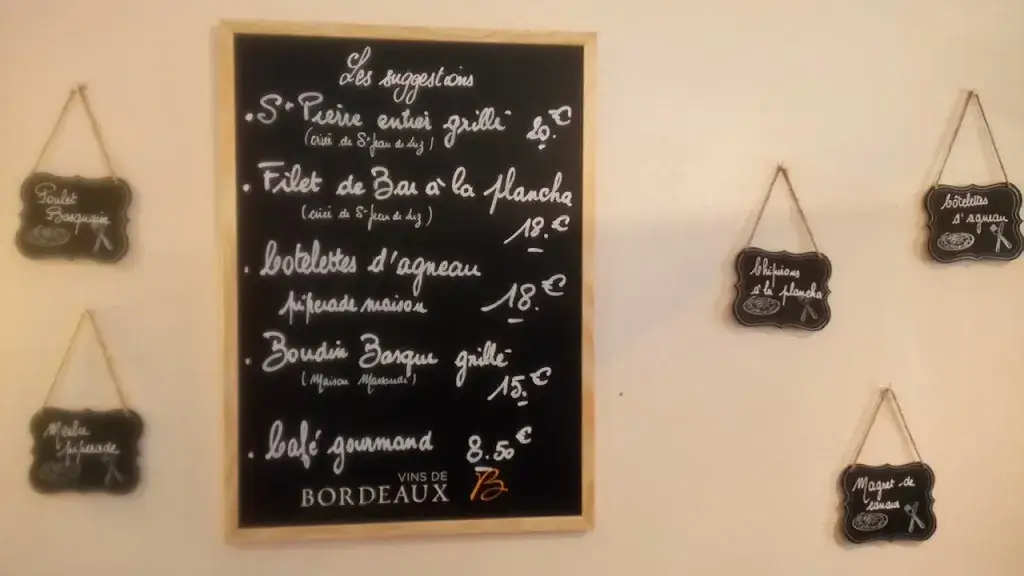 Les suggestions
• St Pierre entier grillé 20.€
(criée de St Jean de Luz)
• Filet de Bar à la plancha
(criée de St Jean de Luz)
18.€
• Cotelettes d'agneau
piperade maison 18.€
• Boudin Basque grillé
(Maison
15.€
• Café gourmand 8.50€
VINS DE
BORDEAUX B
Poulet
Basquais
Merlu
piperade
Chipirons
à la plancha
Côtelettes
d'agneau
Magret de
canard